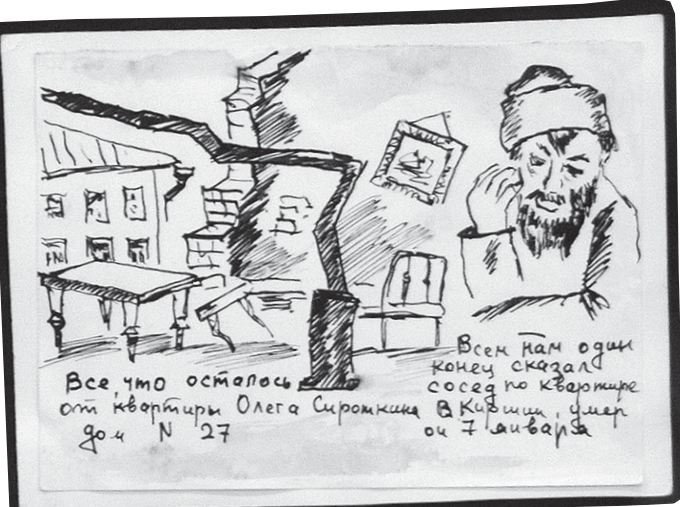 Все, что осталось
от квартиры Олега Сироткина
дом N 27
Всем нам один
конец сказал
сосед по квартире
В. Киршин, умер
он 7 января